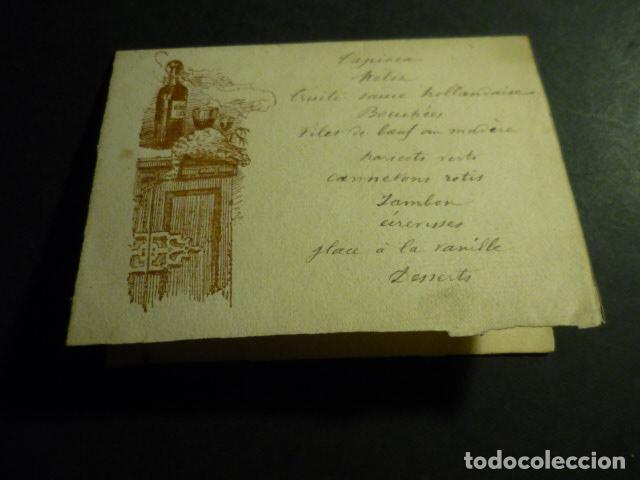 Tapioca
Melon
Truite sauce hollandaise
Bouchées
Filet de bœuf au madère
haricots verts
cannetons rotis
Jambon
glace à la vanille
Desserts
todocoleccion.net